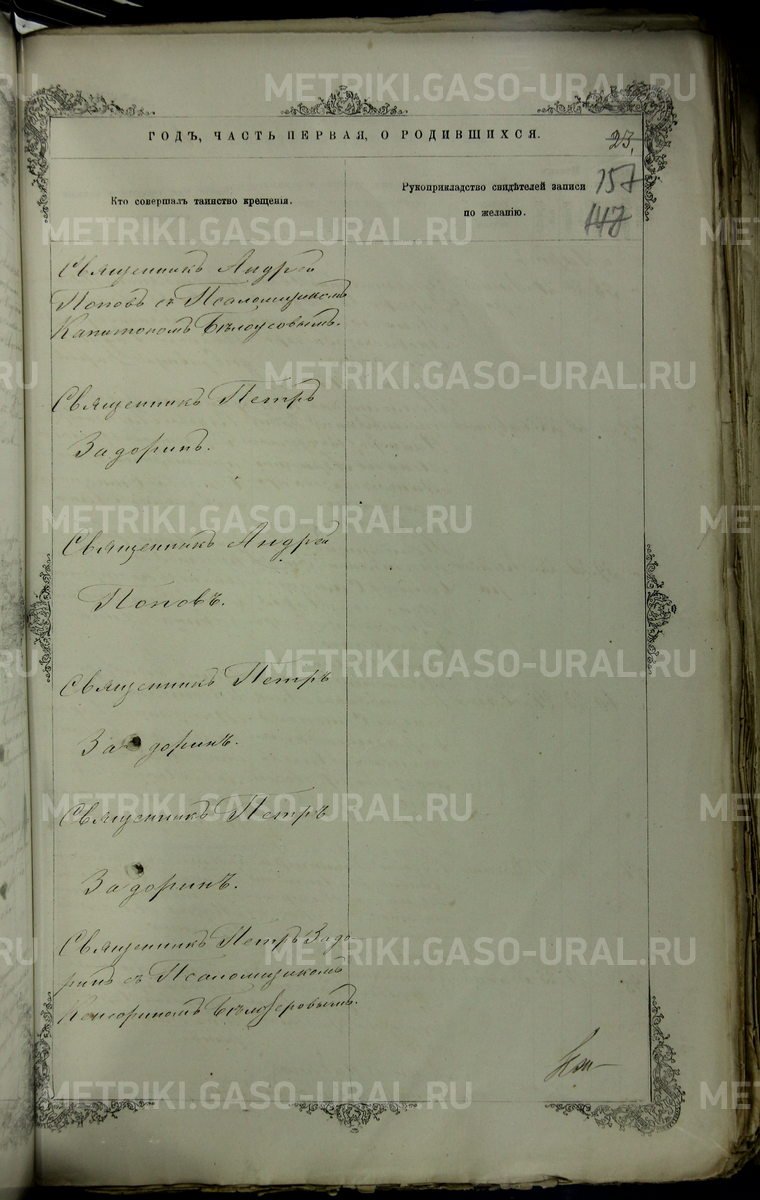 METRIKI.GASO-URAL.RU
ГОДЪ, ЧАСТЬ ПЕРВАЯ, О РОДИВШИХСЯ.
23.
Кто совершалъ таинство крещенія.
Рукоприкладство свидѣтелей записи
по желанію.
157
147
Священникъ Андрей
Поповъ съ Псаломщикомъ
Капитономъ Бѣлоусовымъ.
Священникъ Петръ
Задоринъ.
Священникъ Андрей
Поповъ.
Священникъ Петръ
Задоринъ.
Священникъ Петръ
Задоринъ.
Священникъ Петръ Задо
ринъ съ Псаломщикомъ
Кенсориномъ Бѣлозеровымъ.